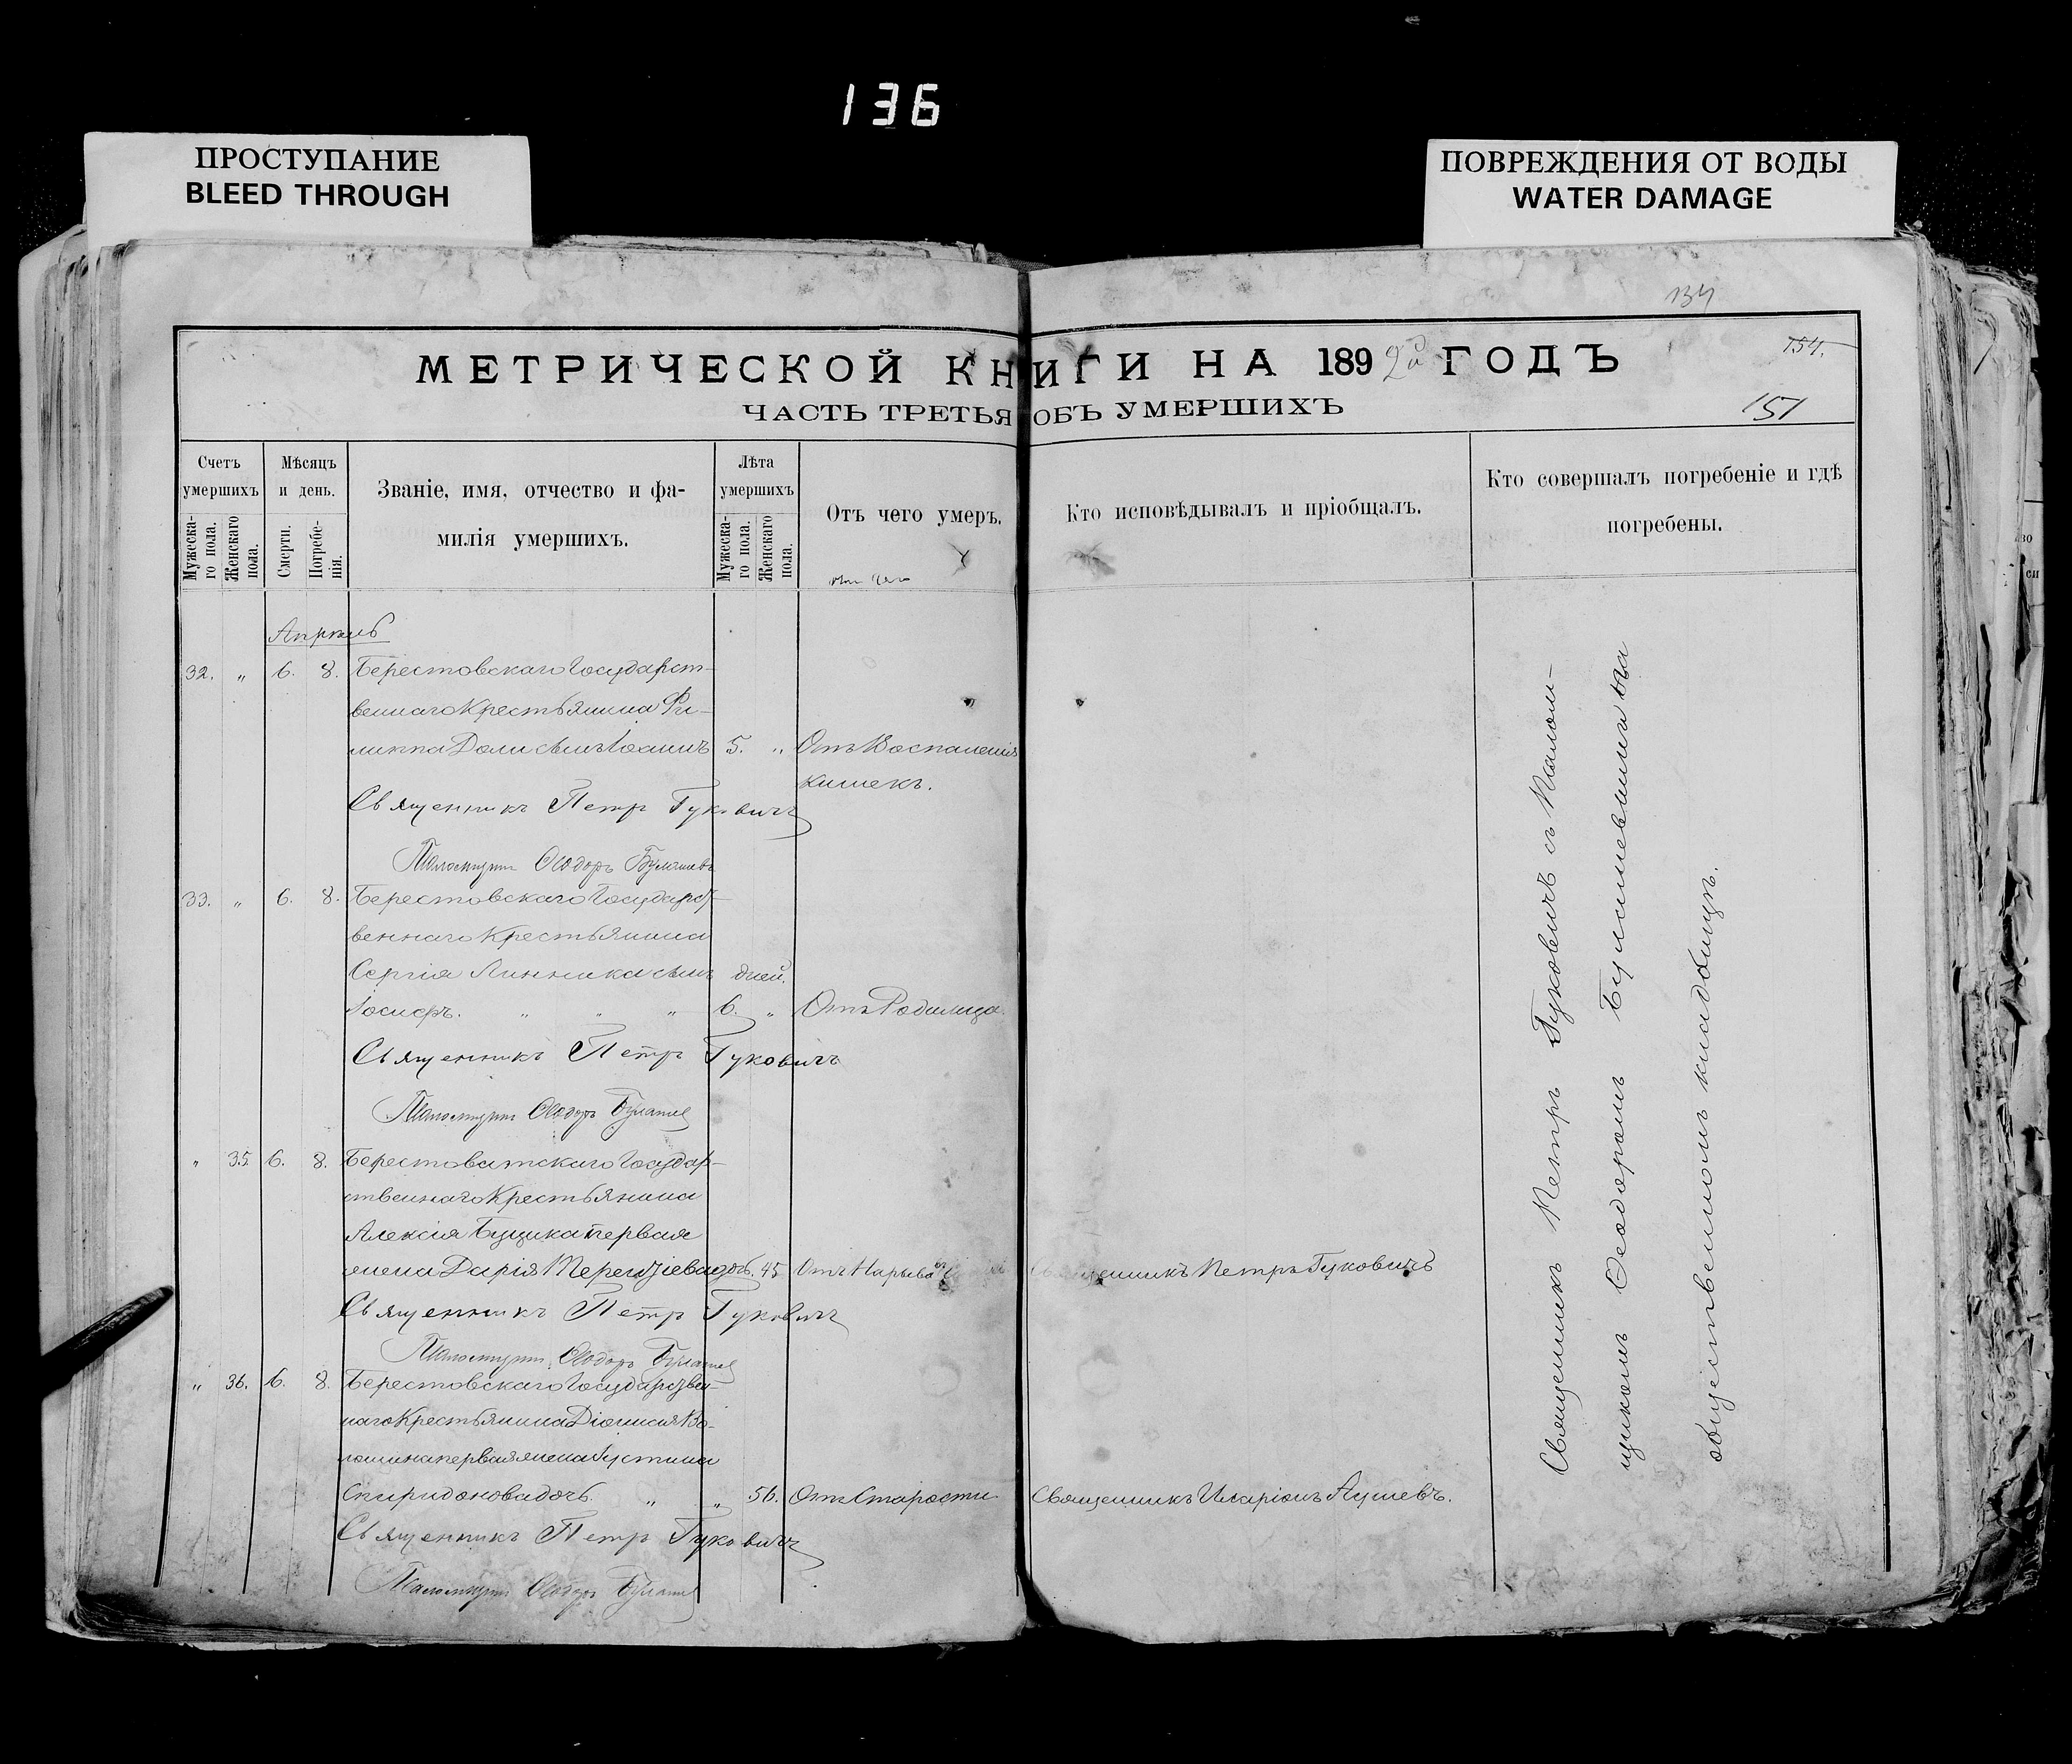 136
ПРОСТУПАНИЕ
BLEED THROUGH
ПОВРЕЖДЕНИЯ ОТ ВОДЫ
WATER DAMAGE
134
154.
151
МЕТРИЧЕСКОЙ КНИГИ НА 1892й ГОДЪ
ЧАСТЬ ТРЕТЬЯ ОБЪ УМЕРШИХЪ
Счетъ умершихъ
Мужеска-го пола.
Женскаго пола.
Мѣсяцъ и день.
Смерти.
Погребе-нія.
Званіе, имя, отчество и фа-
милія умершихъ.
Лѣта умершихъ
Мужеска-го пола.
Женскаго пола.
Отъ чего умеръ.
Кто исповѣдывалъ и пріобщалъ.
Кто совершалъ погребеніе и гдѣ
погребены.
Апрѣль
32. „ 6. 8. Берестовскаго Государст-
веннаго Крестьянина Фи-
липпа Доли сынъ Іоаннъ 5. „ Отъ Воспаленія
кишекъ.
Священникъ Петръ Гуковичъ
Псаломщикъ Ѳеодоръ
33. „ 6. 8. Берестовскаго Государст-
веннаго Крестьянина
Сергія Линника сынъ дней.
Іосифъ. „ „ „ 6. „ Отъ Родимца.
Священникъ Петръ Гуковичъ
Псаломщикъ Ѳеодоръ
„ 35 6. 8. Берестоватскаго Государ-
ственнаго Крестьянина
Алексія Буцика первая
жена Дарія Терентіева дочь. 45 Отъ Нарыва
Священникъ Петръ Гуковичъ
Священникъ Петръ Гуковичъ
Псаломщикъ Ѳеодоръ
„ 36. 6. 8. Берестовскаго Государствен-
наго Крестьянина Діонисія Во-
лошина первая жена Іустина
Спиридонова дочь. „ „ 56. Отъ Старости
Священникъ Иларіонъ
Священникъ Петръ Гуковичъ
Псаломщикъ Ѳеодоръ
Священникъ Петръ Гуковичъ съ Псалом-
щикомъ Ѳеодоромъ на
общественномъ кладбищѣ.